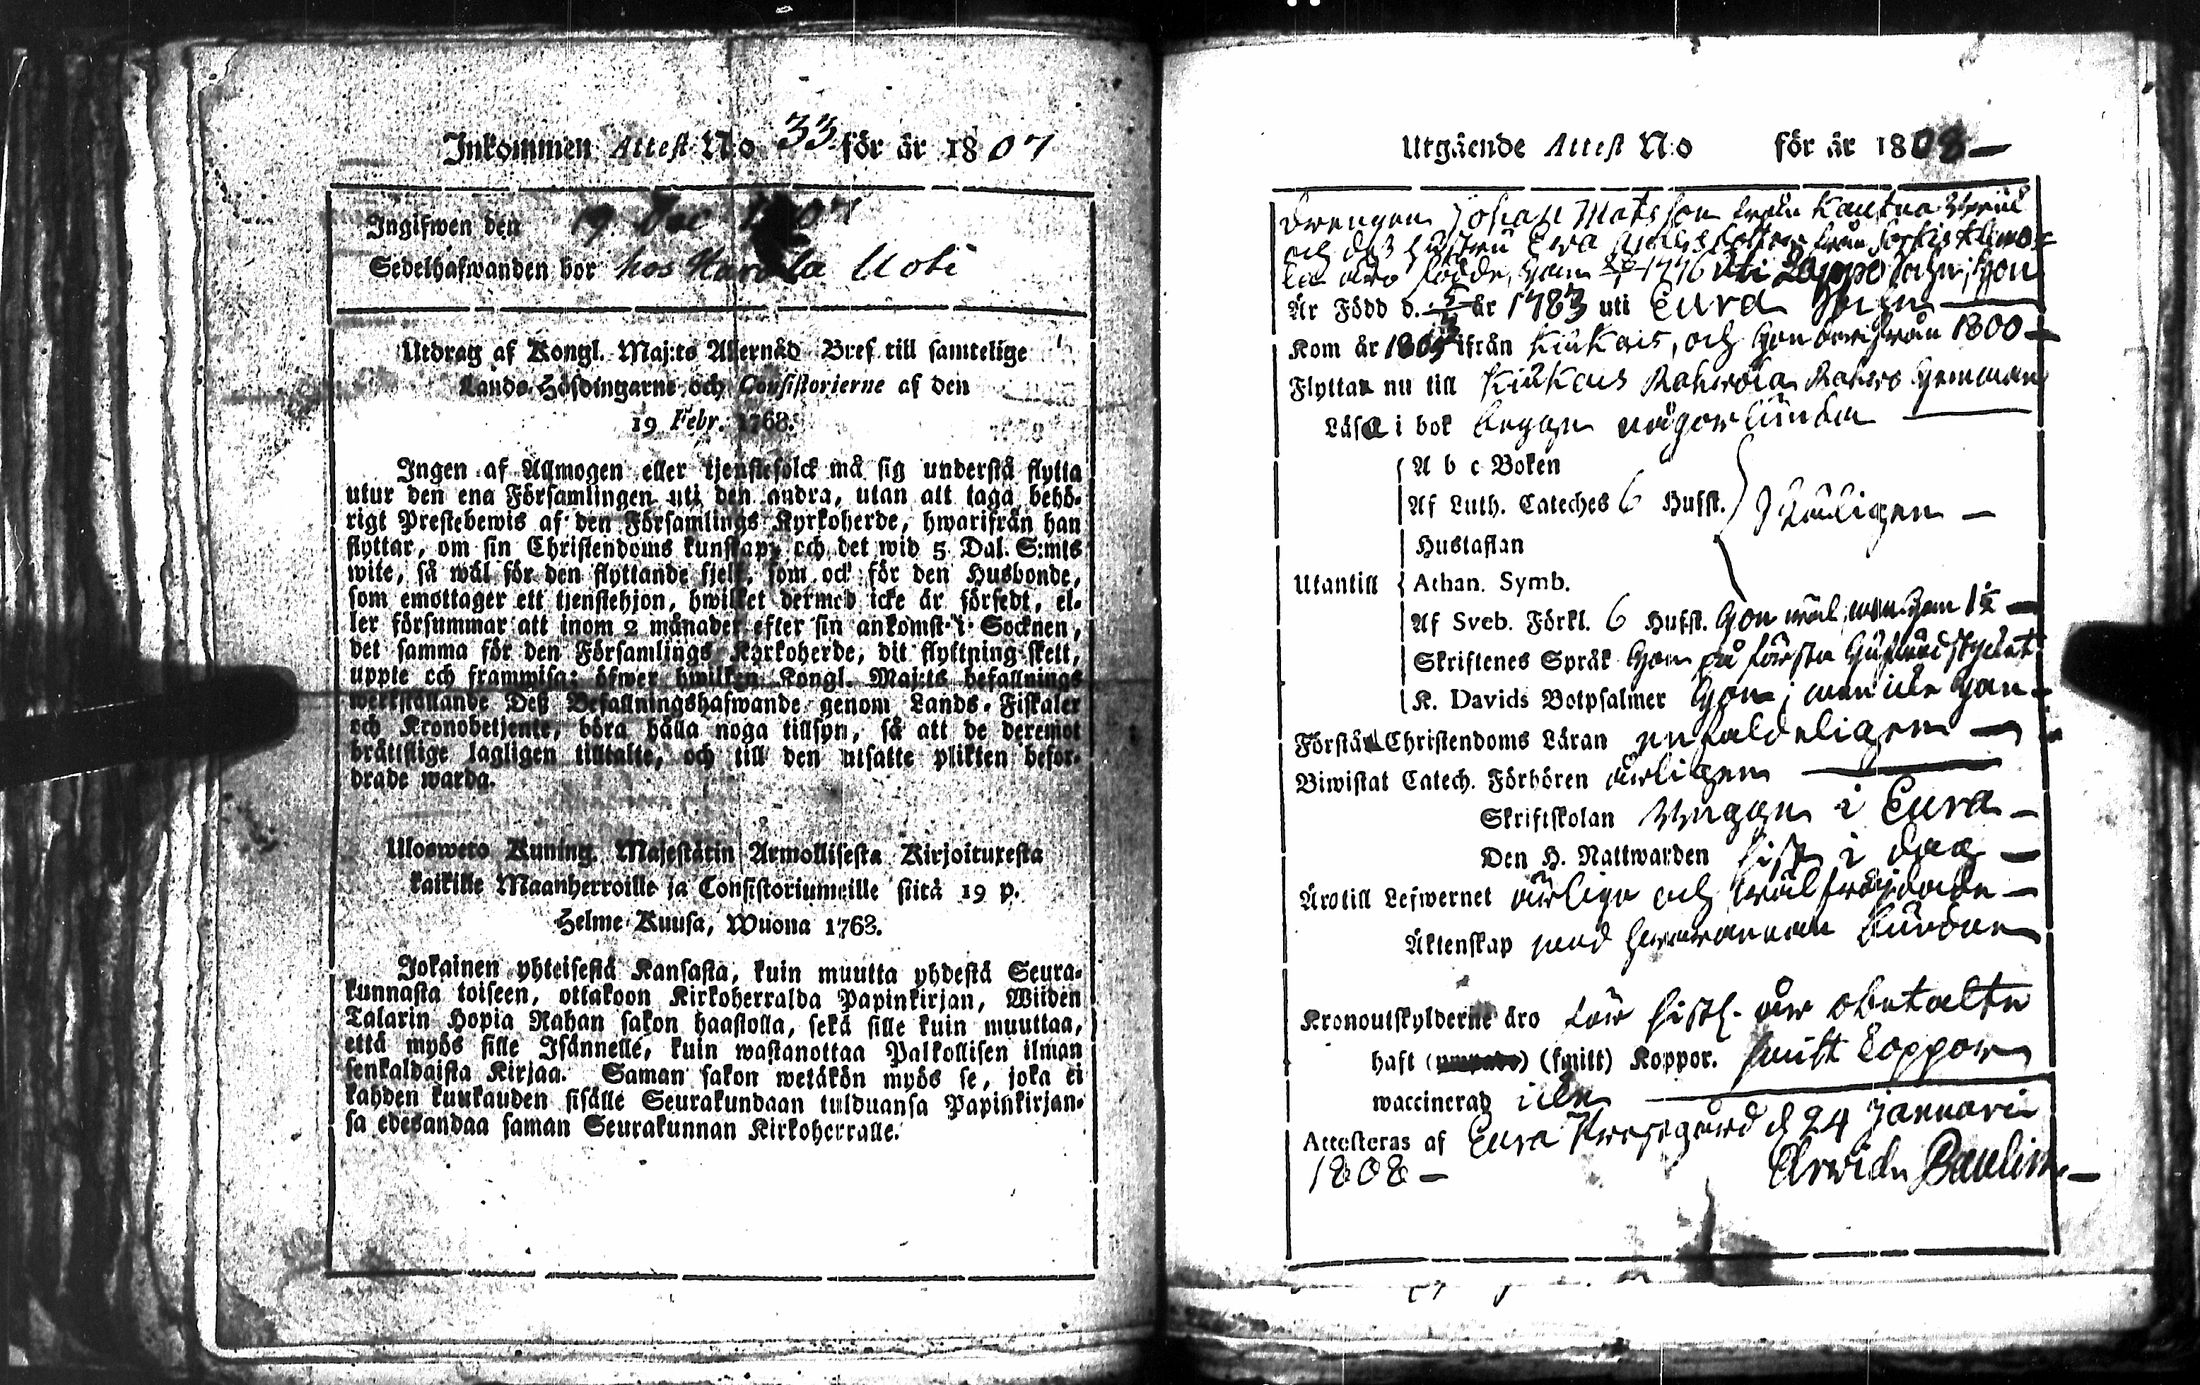 Inkommen Attest N:o 33 för år 1807
Ingifwen den 19 Dec 1807
Sedelhafwanden bor hos Uoti
Utdrag af Kongl. Maj:ts Allernåd. Bref till samtelige
Lands-Höfdingarne och Consistorierne af den
19 Febr. 1768.
Ingen af Allmogen eller tjenstefolck må sig understå flytta
utur den ena Församlingen uti den andra, utan att taga behö-
rigt Prestebewis af den Församlings Kyrkoherde, hwarifrån han
flyttar, om sin Christendoms kunskap, och det wid 5 Dal. S:mts
wite, så wäl för den flyttande sjelf, som ock för den Husbonde,
som emottager ett tjenstehjon, hwilket dermed icke är försedt, el-
ler försummar att inom 2 månader efter sin ankomst i Socknen,
det samma för den Församlings Kyrkoherde, dit flyttning skett,
uppte och framwisa; öfwer hwilken Kongl. Maj:ts befallnings
werkställande Deß Befallningshafwande genom Lands-Fiskaler
och Kronobetjente, böra hålla noga tillsyn, så att de deremot
brättslige lagligen tilltalte, och till den utsatte plikten befor-
drade warda.
Uloswero Kuning. Majestätin Armollisesta Kirjoituxesta
kaikille Maanherroille ja Consistoriumeille siitä 19 p.
Helme-Kuusa, Wuona 1768.
Jokainen yhteisestä Kansasta, kuin muutta yhdestä Seura-
kunnasta toiseen, ottakoon Kirkoherralda Papinkirjan, Wiiden
Talarin Hopia Rahan sakon haastolla, sekä sille kuin muuttaa,
että myös sille Isännelle, kuin wastanottaa Palkollisen ilman
senkaldaista Kirjaa. Saman sakon wetäkön myös se, joka ei
kahden kuukauden sisälle Seurakundaan tulduansa Papinkirjan-
sa edesandaa saman Seurakunnan Kirkoherralle.
Utgående Attest N:o för år 1808
Drengen Johan Matsson från Kauttua
och deß hustru Eva från
äro födde, han 1776 uti Loppo Sokn, hon
Är Född d. år 1783 uti Eura
Kom år ifrån Kiukais, och hon 1800
Flyttar nu till Kiukais hemman
Läsa i bok begge någorlunda
A b c Boken
Af Luth. Cateches 6 Hufst.
Hustaflan
Utantill Athan. Symb.
Af Sveb. Förkl. 6 Hufst. hon wäl, men han 1
Skriftenes Språk hon på första hufwudstycket
K. Davids Botpsalmer hon, men icke han
Förstå Christendoms Läran enfaldeligen
Biwistat Catech. Förhören årligen
Skriftskolan i Eura
Den H. Nattwarden sist i dag
Äro till Lefwernet ärlige och wälfrejdade
Äktenskap med hwarannan
Kronoutskylderne äro för sistl. år obetalte
haft (smitt) Koppor. smitt koppor
waccinerad
Attesteras af Eura Prestgård d 24 Januarii
1808 Arvid Paulin